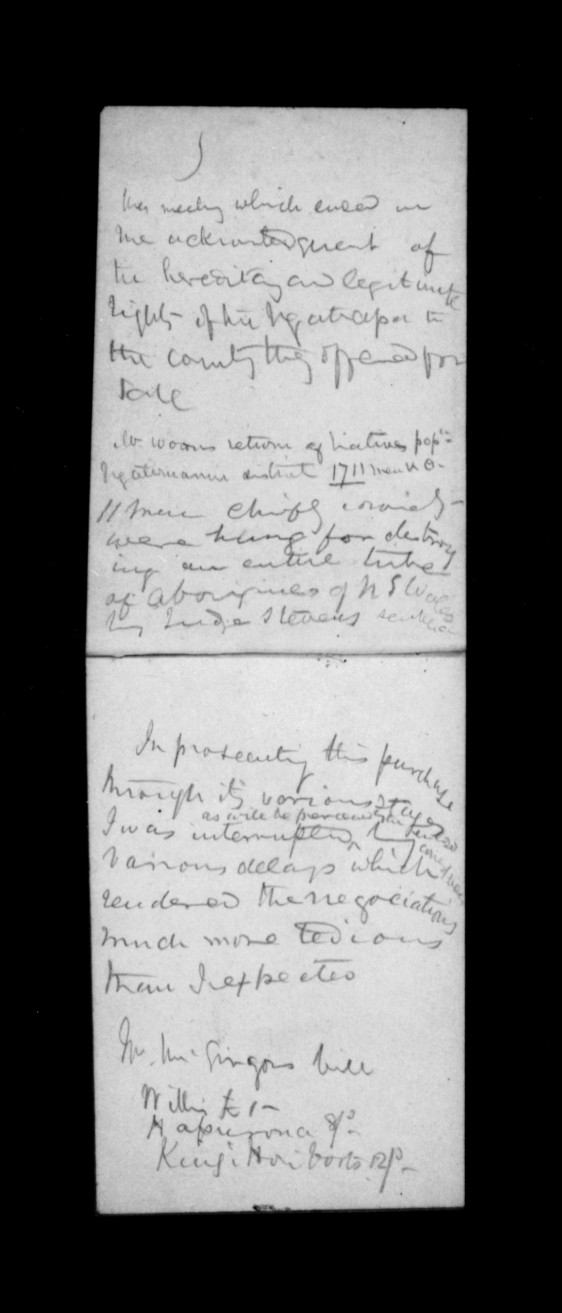 meeting which ended in
the acknowledgment of
the hereditary and legitimate
rights of the Ngateapa to
the country they offered for
Sale
return of Natives popn
district 1711 men
11 men chiefly
were hung for destroy
ing an entire tribe
of aborigines of N S Wales
by Judge Stevens sentence
In prosecuting this purchase
through its various stages
as will be perceived
I was interrupted by
various delays which
rendered the negociations
much more tedious
than I expected
Mr. Mc Gregors bill
Willis £ 1-
Hapurona 8/-
King i Hori boots 12/-